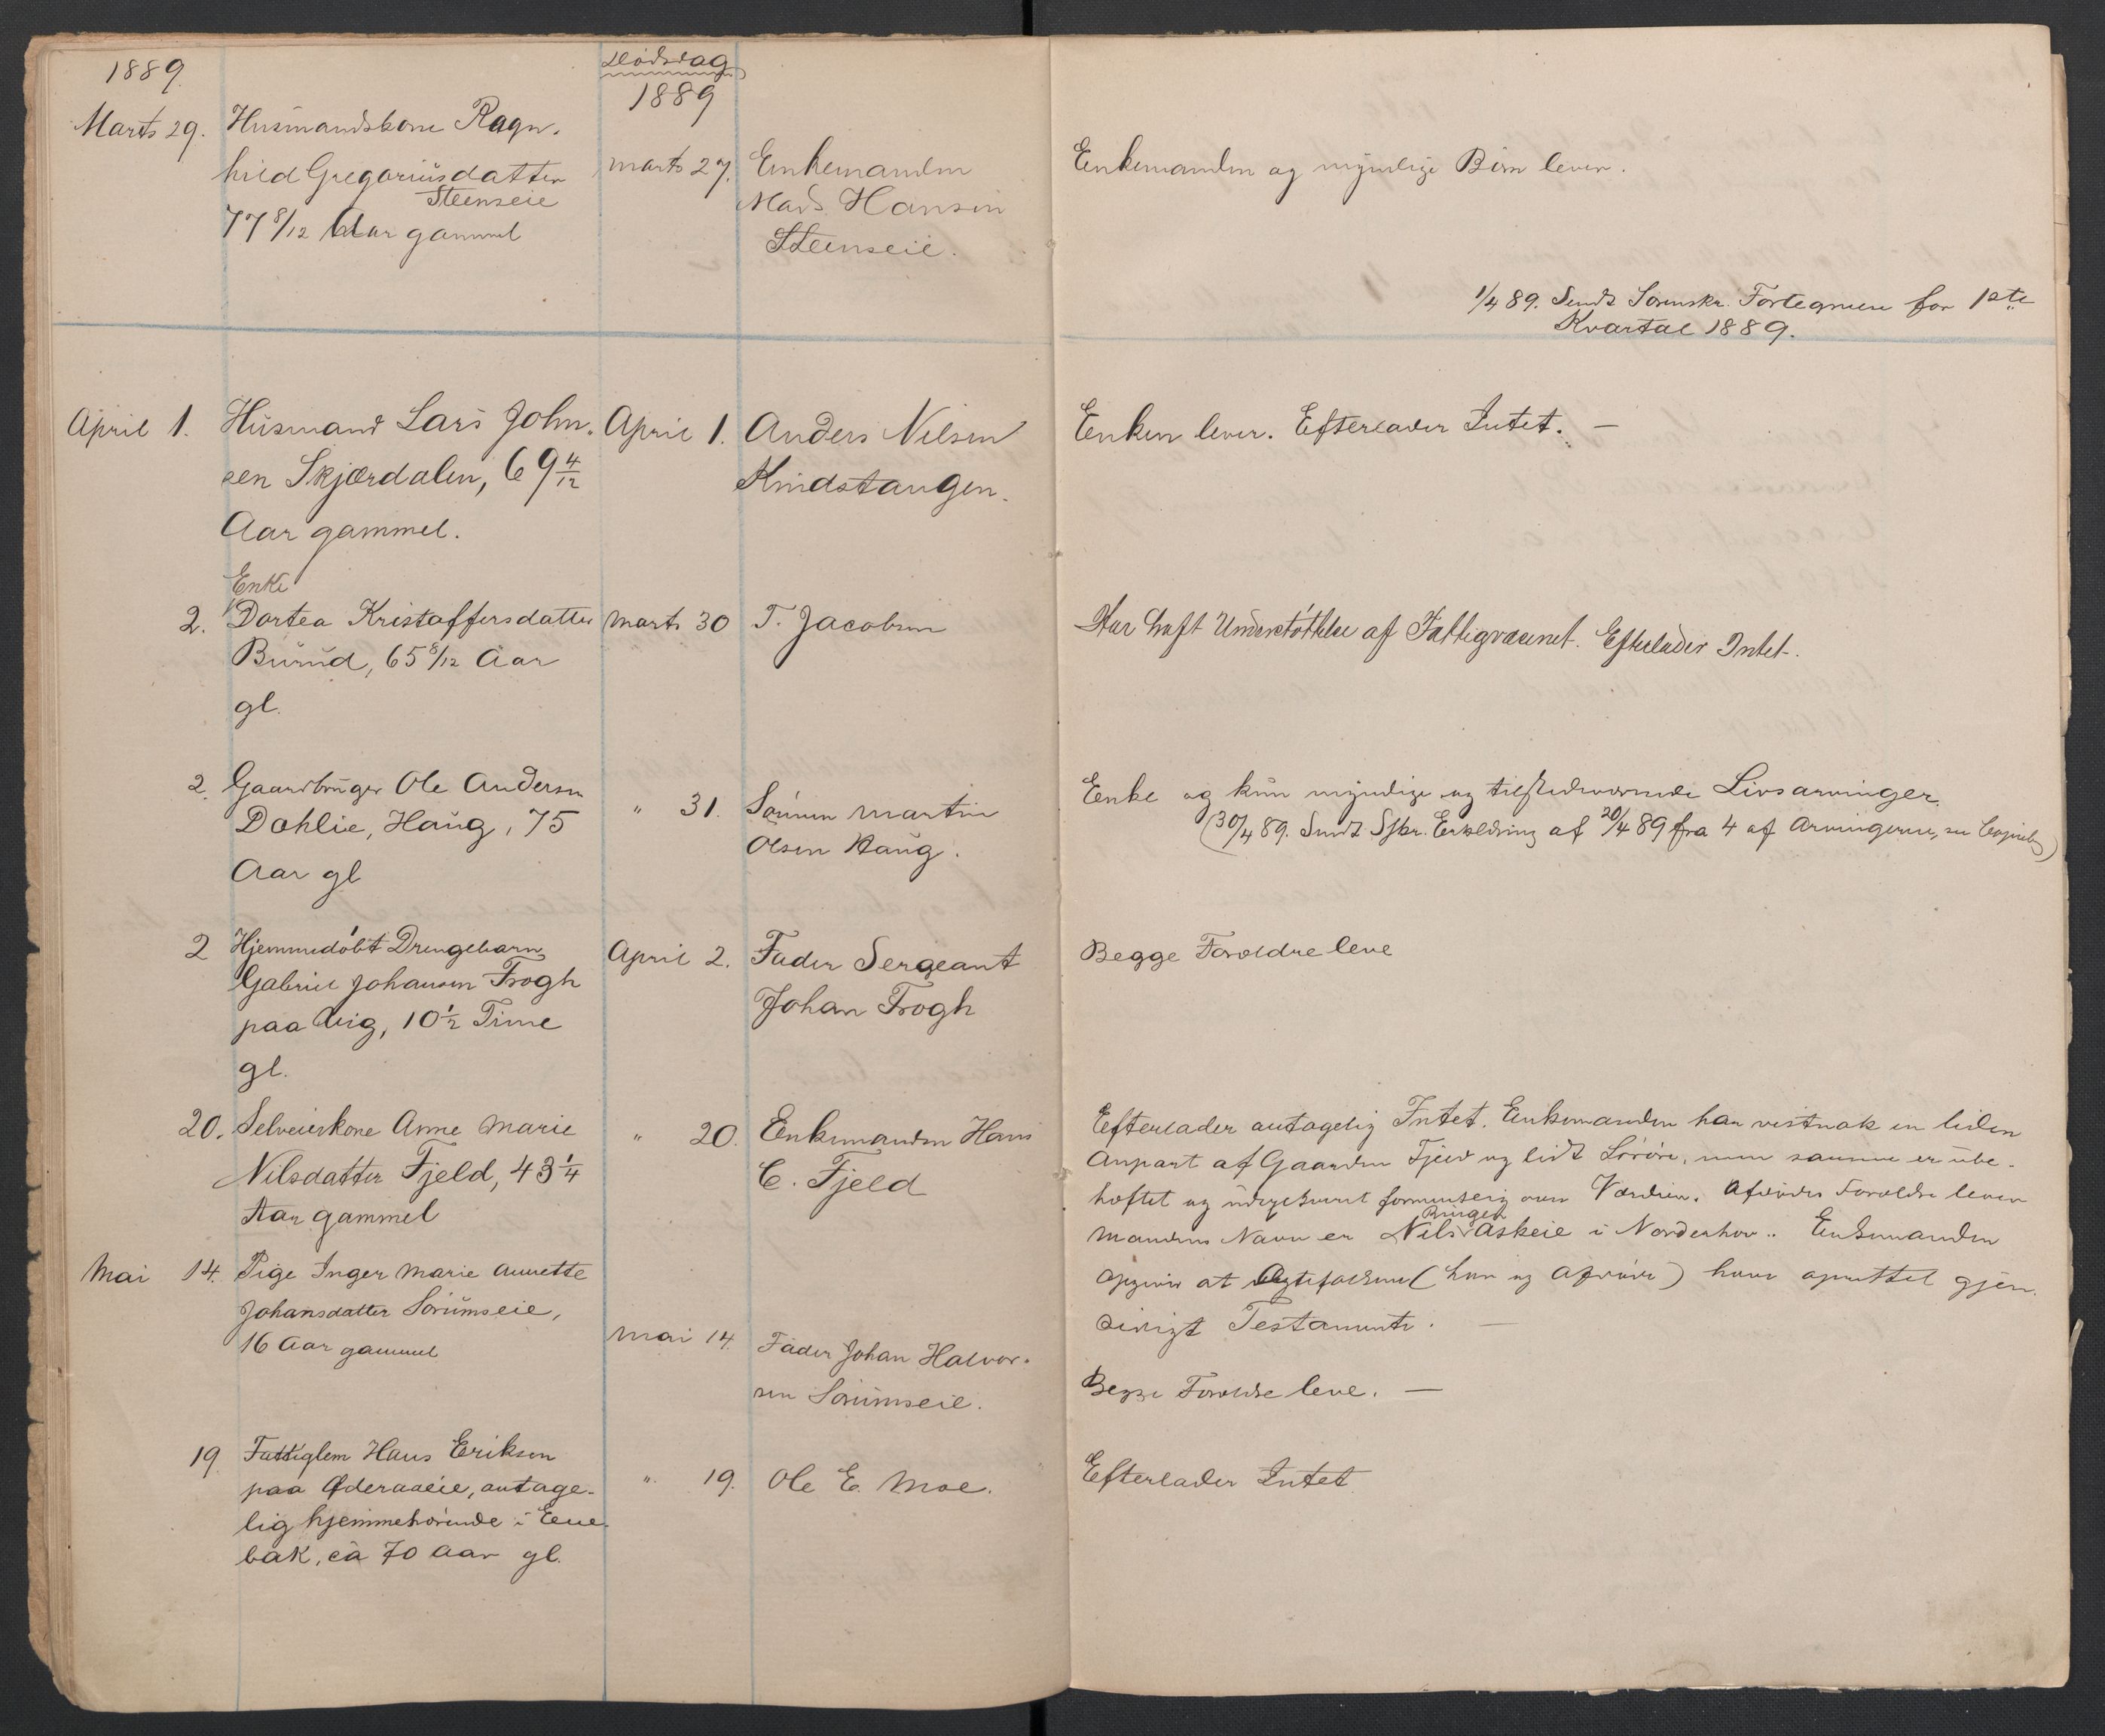 1889
Dødsdag
1889
Marts 29. Husmandskone Ragn-
hild Gregoriusdatter
Steenseie
77 8/12 Aar gammel
Marts 27. Enkemanden
Mads Hansen
Steenseie.
Enkemanden og myndige Børn lever.
1/4 89. Sendt Sorenskr. Fortegnelse for 1ste
Kvartal 1889.
April 1. Husmand Lars John-
sen Skjærdalen, 69 4/12
Aar gammel.
April 1. Anders Nilsen
Kindstangen.
Enken lever. Efterlader Intet. —
Enke
2. Dortea Kristaffersdatter
Burud, 65 8/12 Aar
gl.
Marts 30 T. Jacobsen
Har havt Understøttelse af Fattigvæsenet. Efterlader Intet.
2. Gaardbruger Ole Andersen
Dahlie, Haug, 75
Aar gl
" 31. Sønnen Martin
Olsen Haug.
Enke og kun myndige og tilstedeværende Livsarvinger.
(30/4 89. Sendt Sskr. Erklæring af 20/4 89 fra 4 af Arvingerne, se Copieb)
2 Hjemmedøbt Drengebarn
Gabriel Johansen Frogh
paa Vig, 10 1/2 Time
gl.
April 2. Fader Sergeant
Johan Frogh
Begge Forældre leve
20. Selveierkone Anne Marie
Nilsdatter Fjeld, 43 1/4
Aar gammel
" 20. Enkemanden Hans
C. Fjeld
Efterlader antagelig Intet. Enkemanden har vistnok en liden
Anpart af Gaarden Fjeld og lidt Løsøre, men samme er ube-
heftet og udpantet formentlig over Værdien. Afdødes Forældre lever
Mandens Navn er Nils Bruger Askeie i Norderhov. Enkemanden
opgiver at Ægtefolkene (han og Afdøde) have oprettet gjen-
sidigt Testamente. —
Mai 14. Pige Inger Marie Annette
Johansdatter Sørumseie,
16 Aar gammel
Mai 14. Fader Johan Halvor-
sen Sørumseie.
Begge Forældre leve. —
19 Fattiglem Hans Eriksen
paa Øderaaeie, antage-
lig hjemmehørende i Ene-
bak, ca 70 Aar gl.
" 19. Ole E. Moe.
Efterlader Intet